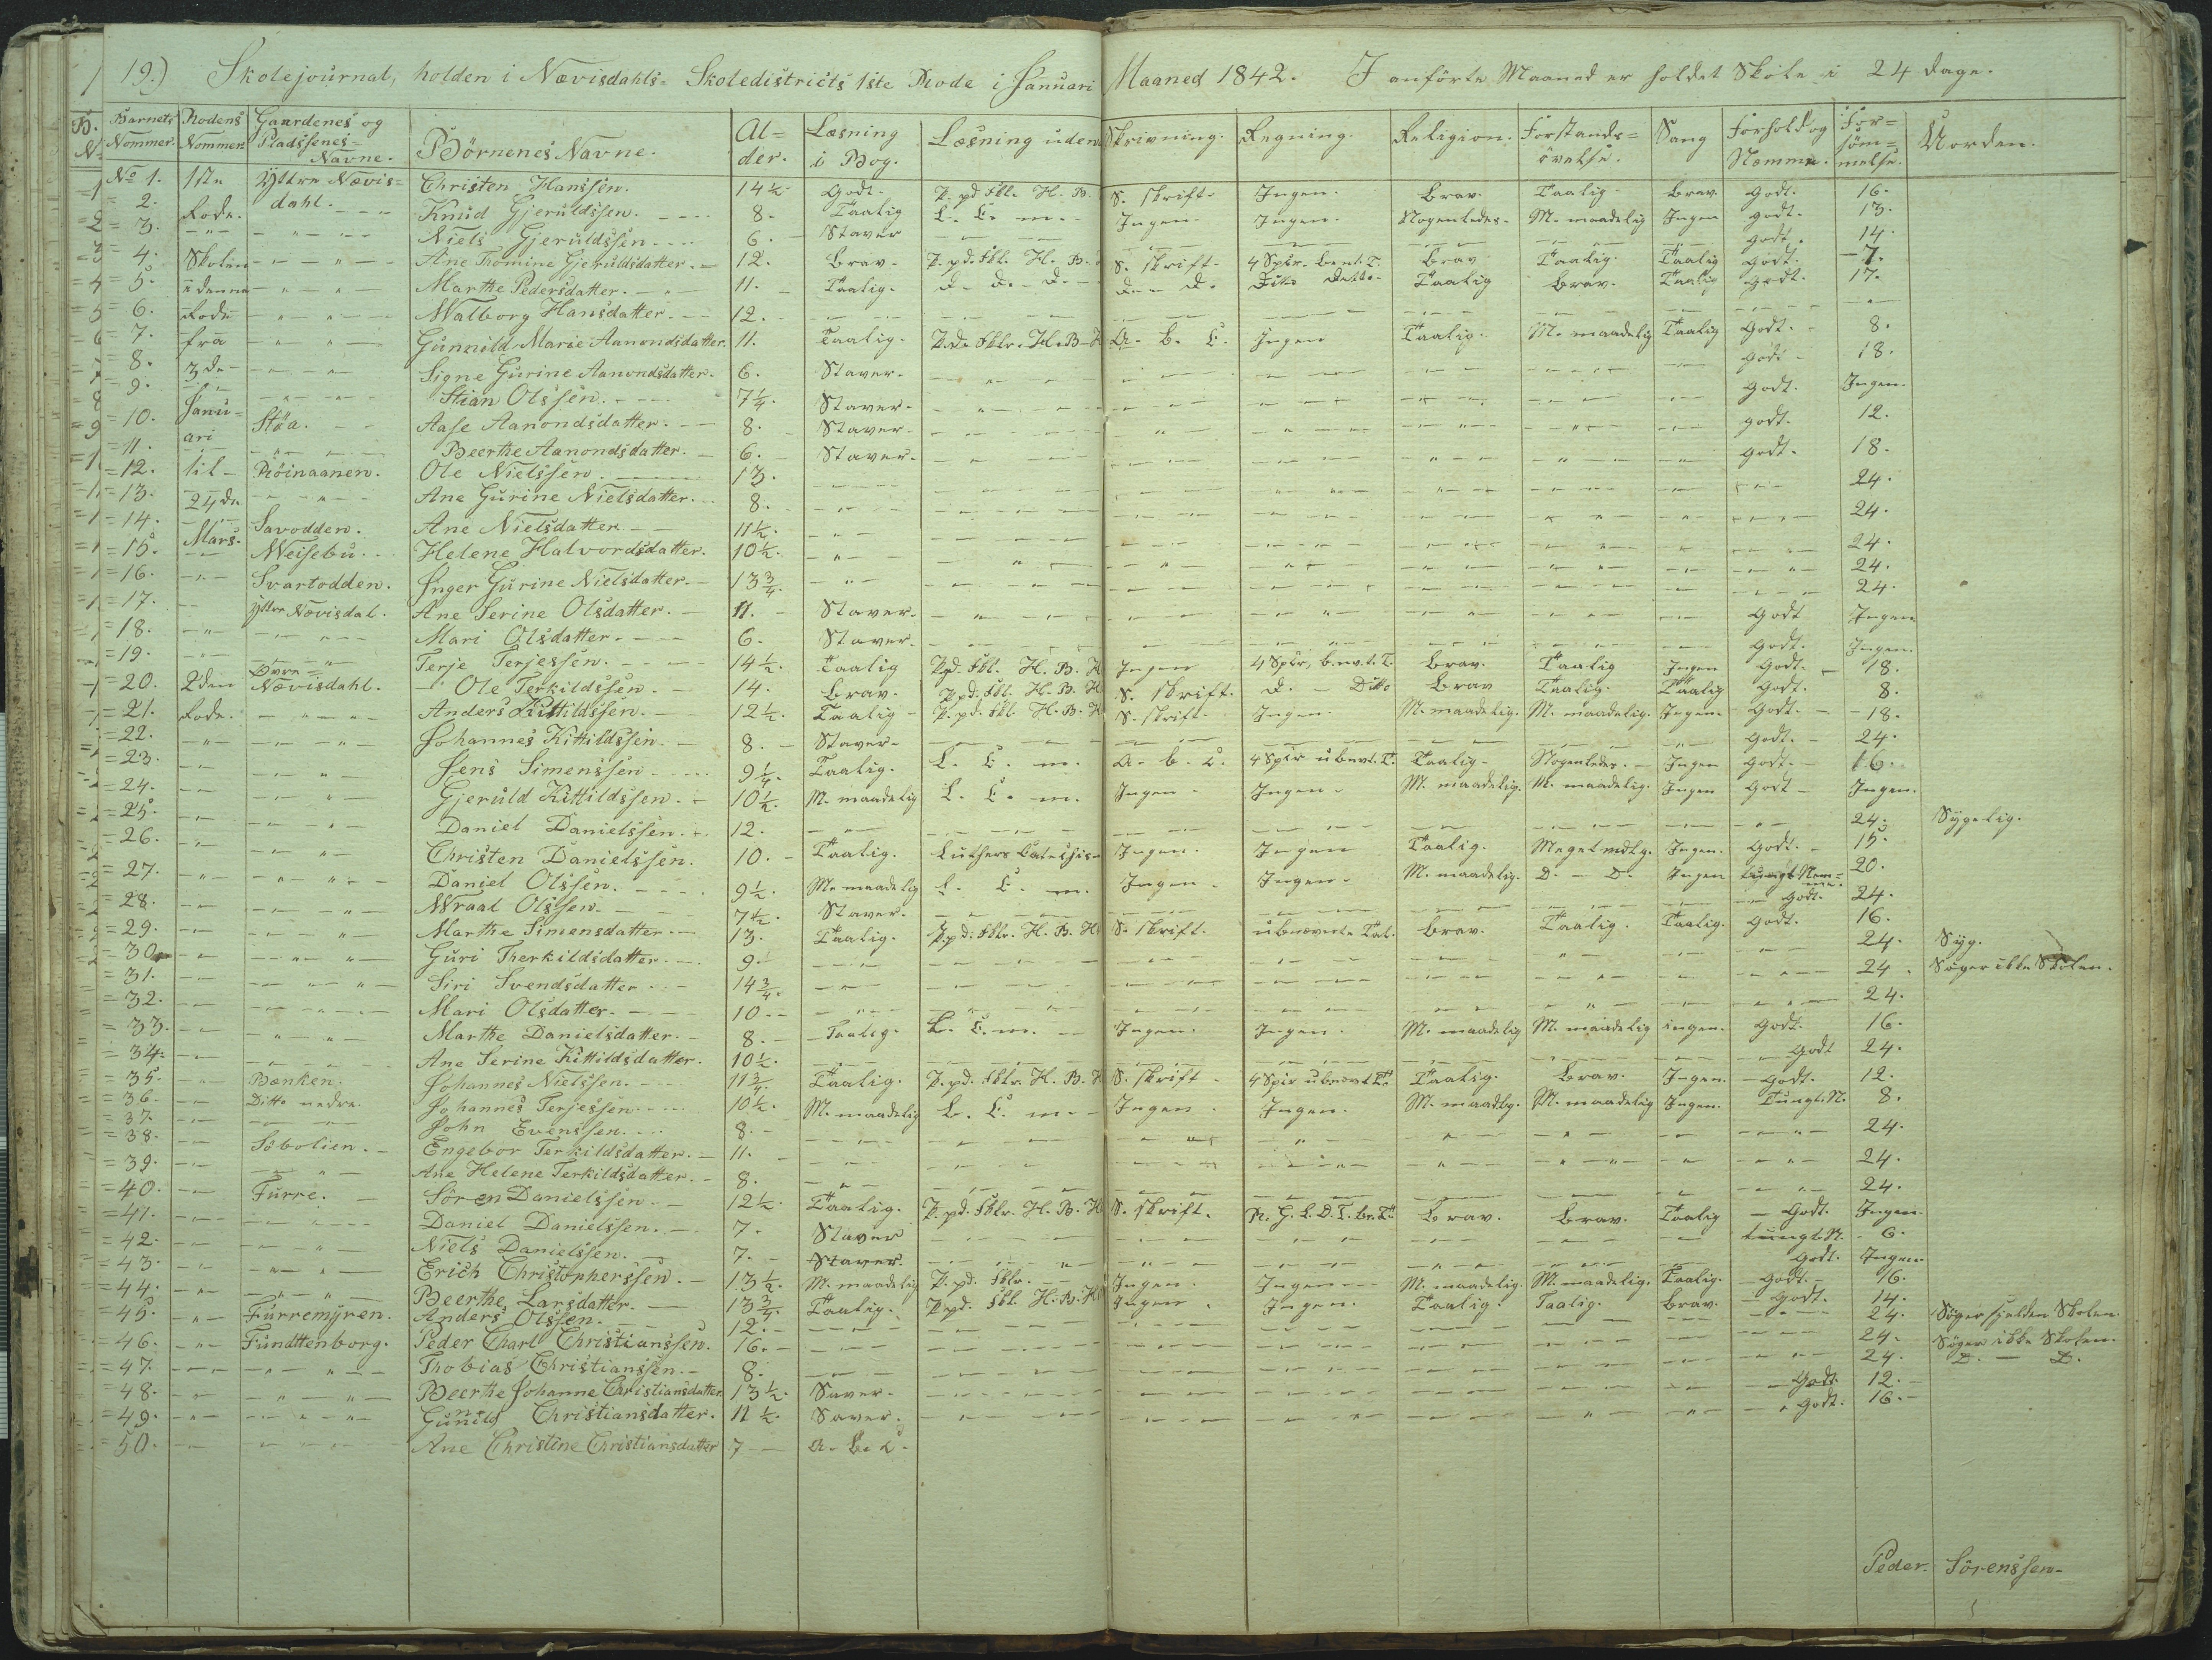 19.) Skolejournal, holden i Nævisdahls= Skoledistricts 1ste Rode i Januari Maaned 1842. I anförte Maaned er holdet Skole i 24 dage.
Barnets Nommer. Rodens Nommer. Gaardenes og Pladssenes= Navne. Börnenes Navne. Al= der. Læsning i Bog. Læsning uden Skrivning. Regning. Religion. Forstands= övelse. Sang Forhold og Nemme. For= söm= melse. Uorden.
No 1. 1ste Ÿttre Nævis= Christen Hanssen. 14½. Godt. P. pd. Fkl. H. B. S. Skrift. Ingen. Brav. Taalig. Brav. Godt. 16.
= 2. Rode. dahl. Knud Gjeruldssen. 8. Taalig L. C. m. Ingen. Ingen. Nogenledes. M. maadelig Ingen Godt. 13.
= 3. Niels Gjeruldssen. 6. Staver Godt. 14.
= 4. Skolen Ane Tromine Gjeruldsdatter. 12. Brav. P. pd. Fkl. H. B. S. Skrift. 4 Spcr. Bent. T. Brav Taalig. Taalig Godt. 7.
= 5. i denne Marthe Pedersdatter. 11. Taalig. D. D. D. D. D. Dito Detto. Taalig Brav. Taalig Godt. 17.
= 6. Rode Walborg Hansdatter. 12.
= 7. fra Gunnild Marie Aanondsdatter. 11. Taalig. P. d. Fklr. H. B. A. B. C. Ingen Taalig. M. maadelig Taalig Godt. 8.
= 8. 3de Signe Gurine Aanondsdatter. 6. Staver. Godt 18.
= 9. Stian Olssen. 7¼. Staver. Godt. Ingen.
= 10. Janu= ari Stöa. Aase Aanondsdatter. 8. Staver. Godt. 12.
= 11. Beerthe Aanondsdatter. 6. Staver. Godt. 18.
= 12. til Röinaanen. Ole Nielssen 13. 24.
= 13. 24de Ane Gurine Nielsdatter. 8. 24.
= 14. Savodden. Ane Nielsdatter 11½. 24.
= 15. Mars. Weisebu. Helene Halvordsdatter. 10½. 24.
= 16. Svartodden. Inger Gurine Nielsdatter. 13¾. 24.
= 17. Ÿttre Nævisdal. Ane Serine Olsdatter. 11. Staver. Godt Ingen
= 18. Mari Olsdatter. 6. Staver. Godt. Ingen.
= 19. Terje Terjessen. 14½. Taalig P. pd. Fkl. H. B. H Ingen 4 Spcr, B. nv. t. T. Brav. Taalig Ingen Godt. 18.
= 20. 2den Övre Nævisdahl. Ole Terkildssen. 14. Brav. P. pd. Fkl. H. B. H S. Skrift. D. Ditto Brav Taalig. Taalig Godt. 8.
= 21. Rode. Anders Kittildssen. 12½. Taalig P. pd. Fkl. H. B. H S. Skrift. Ingen. M. maadelig. M. maadelig. Ingen. Godt. 18.
= 22. Johannes Kittildssen. 8. Staver. Godt. 24.
= 23. Jens Simenssen. 9¼. Taalig. L. C. m. A. b. c. 4 Spcr ubnvt. T. Taalig. Nogenledes. Ingen Godt. 16.
= 24. Gjeruld Kittildssen. 10½. M. maadelig L. C. m. Ingen. Ingen. M. maadelig. M. maadelig. Ingen Godt Ingen.
= 25. Daniel Danielssen. 12. 24. Sygelig.
= 26. Christen Danielssen. 10. Taalig. Luthers Catechis= Ingen. Ingen Taalig. Meget mdlg. Ingen. Godt. 15.
= 27. Daniel Olssen. 9½. M. maadelig L. C. m. Ingen. Ingen. M. maadelig. D. D. Ingen tungt Nem= me. 20.
= 28. Wraal Olssen. 7½. Staver. Godt. 24.
= 29. Marthe Simensdatter. 13. Taalig. P. pd. Fklr. H. B. H S. Skrift. ubnævnte Tal. Brav. Taalig. Taalig. Godt. 16.
= 30. Guri Therkildsdatter. 9. 24. Syg.
= 31. Siri Svendsdatter. 14¾. 24. Söger ikke Skolen.
= 32. Mari Olsdatter. 10. 24.
= 33. Marthe Danielsdatter. 8. Taalig. L. C. m. Ingen. Ingen. M. maadelig M. maadelig ingen. Godt. 16.
= 34. Ane Serine Kittildsdatter. 10½. Godt 24.
= 35. Bænken. Johannes Nielssen. 11¾. Taalig. P. pd. Fklr. H. B. H S. Skrift. 4 Spcr ubnvt T. Taalig. Brav. Ingen. Godt. 12.
= 36. Ditto nedre. Johannes Terjessen. 10½. M. maadelig L. C. m. Ingen. Ingen. M. maadlg. M. maadelig Ingen. Tungt. N. 8.
= 37. John Evenssen. 8. 24.
= 38. Söbolien. Engebor Terkildsdatter. 11. 24.
= 39. Ane Helene Terkildsdatter. 8. 24.
= 40. Furre. Sören Danielssen. 12½. Taalig. P. pd. Fklr. H. B. H S. Skrift. Brav. Brav. Taalig Godt. Ingen.
= 41. Daniel Danielssen. 7. Staver tungt. N. 6.
= 42. Niels Danielssen. 7. Staver. Godt. Ingen
= 43. Erich Christopherssen. 13½. M. maadelig P. pd. Fklr. Ingen. Ingen M. maadelig. M. maadelig. Taalig. Godt. 16.
= 44. Beerthe Larsdatter. 13¾. Taalig. P. pd. Fkl. H. B. H Ingen. Ingen. Taalig. Taalig. Brav. Godt. 14.
= 45. Furremÿren. Anders Olssen. 12. 24. Söger sjelden Skolen.
= 46. Fundttenborg. Peder Charl Christianssen. 16. 24. Söger ikke Skolen.
= 47. Thobias Christianssen. 8. 24. D. D.
= 48. Beerthe Johanne Christiansdatter. 13½. Saver. Godt. 12.
= 49. Gunnild Christiansdatter. 11½. Saver. Godt. 16.
= 50. Ane Christine Christiansdatter 7 A. B. c.
Peder Sörenssen